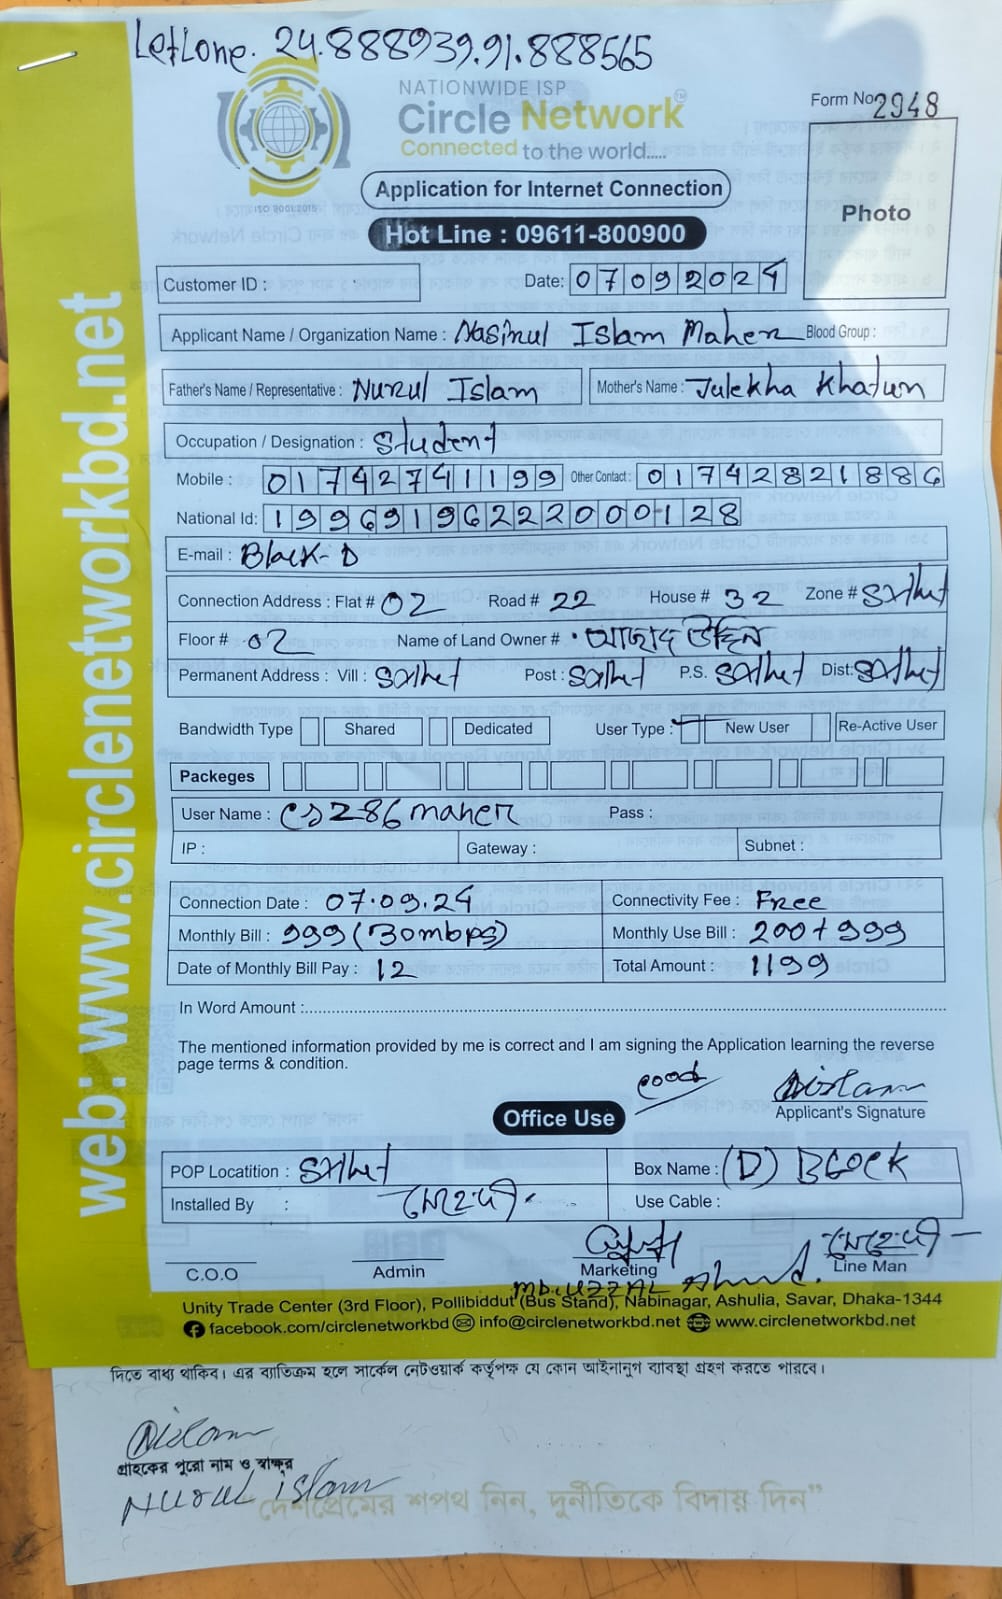 LetLone. 24.888939.91.888565
NATIONWIDE ISP
Circle Network
Connected to the world.....
ISO 9001:2015
Form No 2948
Application for Internet Connection
Photo
Hot Line : 09611-800900
Customer ID :
Date: 07092024
Applicant Name / Organization Name : Nasinul Islam Maher Blood Group :
Father's Name / Representative : Nurul Islam Mother's Name : Julekha Khatun
Occupation / Designation : Student
Mobile : 01742741199 Other Contact : 01742821886
National Id: 19969196222000128
E-mail : Black-D
Connection Address : Flat # 02 Road # 22 House # 32 Zone # Sylhet
Floor # 02 Name of Land Owner # আজাদ উদ্দিন
Permanent Address : Vill : Sylhet Post : Sylhet P.S. Sylhet Dist: Sylhet
Bandwidth Type Shared Dedicated User Type : New User Re-Active User
Packeges
User Name : cs286maher Pass :
IP : Gateway : Subnet :
Connection Date : 07.09.24 Connectivity Fee : Free
Monthly Bill : 999 (30mbps) Monthly Use Bill : 200+999
Date of Monthly Bill Pay : 12 Total Amount : 1199
In Word Amount :
The mentioned information provided by me is correct and I am signing the Application learning the reverse
page terms & condition.
Good
Applicant's Signature
Office Use
POP Locatition : Sylhet Box Name : (D) Block
Installed By : মেহেদী Use Cable :
মেহেদী
C.O.O Admin Marketing Line Man
MD. UZZAL Ahmed.
Unity Trade Center (3rd Floor), Pollibiddut (Bus Stand), Nabinagar, Ashulia, Savar, Dhaka-1344
facebook.com/circlenetworkbd info@circlenetworkbd.net www.circlenetworkbd.net
web: www.circlenetworkbd.net
দিতে বাধ্য থাকিব। এর ব্যাতিক্রম হলে সার্কেল নেটওয়ার্ক কর্তৃপক্ষ যে কোন আইনানুগ ব্যাবস্থা গ্রহণ করতে পারবে।
গ্রাহকের পুরো নাম ও স্বাক্ষর
Nurul islam
দেশপ্রেমের শপথ নিন, দুর্নীতিকে বিদায় দিন"